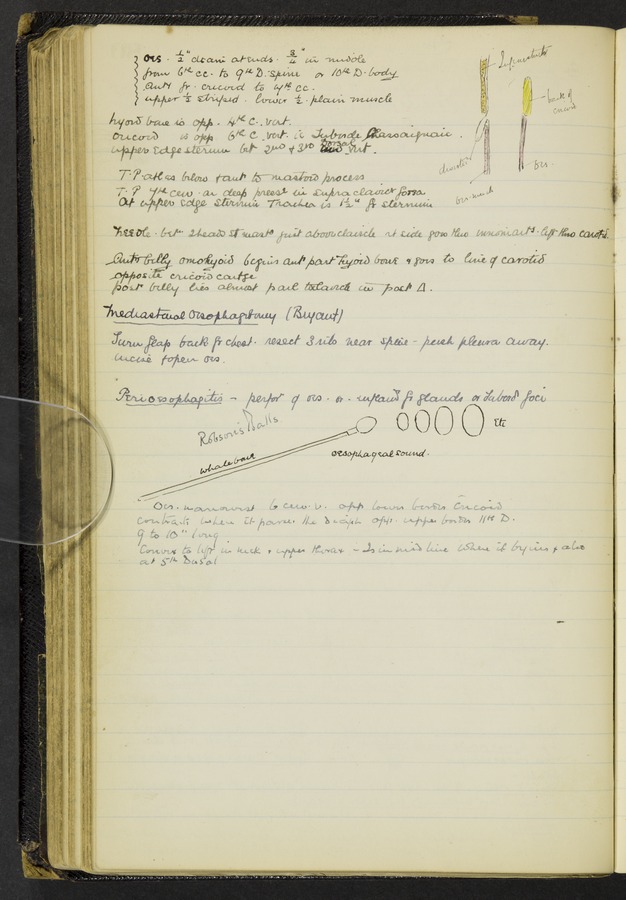 oes. ½" diam at ends. ¾" in middle
from 6th cc. to 9th D. spine or 10th D. body
cricoid to 4th cc.
upper ⅓ striped. lower ½ plain muscle
hyoid bone is opp. 4th C. vert.
cricoid is opp 6th C. vert. is Tubercle Chassaignaic.
upper edge sternum bet 2nd + 3rd Dorsal vert.
T.P atlas below + ant to mastoid process
T.P 7th cerv. on deep press in supra clavicr fossa
at upper edge sternum Trachea is 1½" fr sternum
Needle. betn 2 heads st mast just above clavicle rt side goes thro innom art. left thro carotid.
Ant belly omohyoid begins ant part hyoid bone + goes to line of carotid
opposite cricoid cartge
post belly lies almost parl to clavicle in post Δ.
Mediastinal oesophagotomy (Bryant)
Turn flap back fr chest. resect 3 ribs near spine - push pleura away.
incise + open oes.
Perioesophagitis - perfor of oes. or inflamn fr glands or tubercr foci
Robson's Balls
etc
whalebone
oesophageal sound.
Oes. narrowest 6 cerv. v. opp lower border cricoid
when it passes the diaph opp. upper border 11th D.
9 to 10" long
to left in neck + upper thorax - Is in mid line where it begins + also
at 5th Dorsal
back of
cricoid
oes.